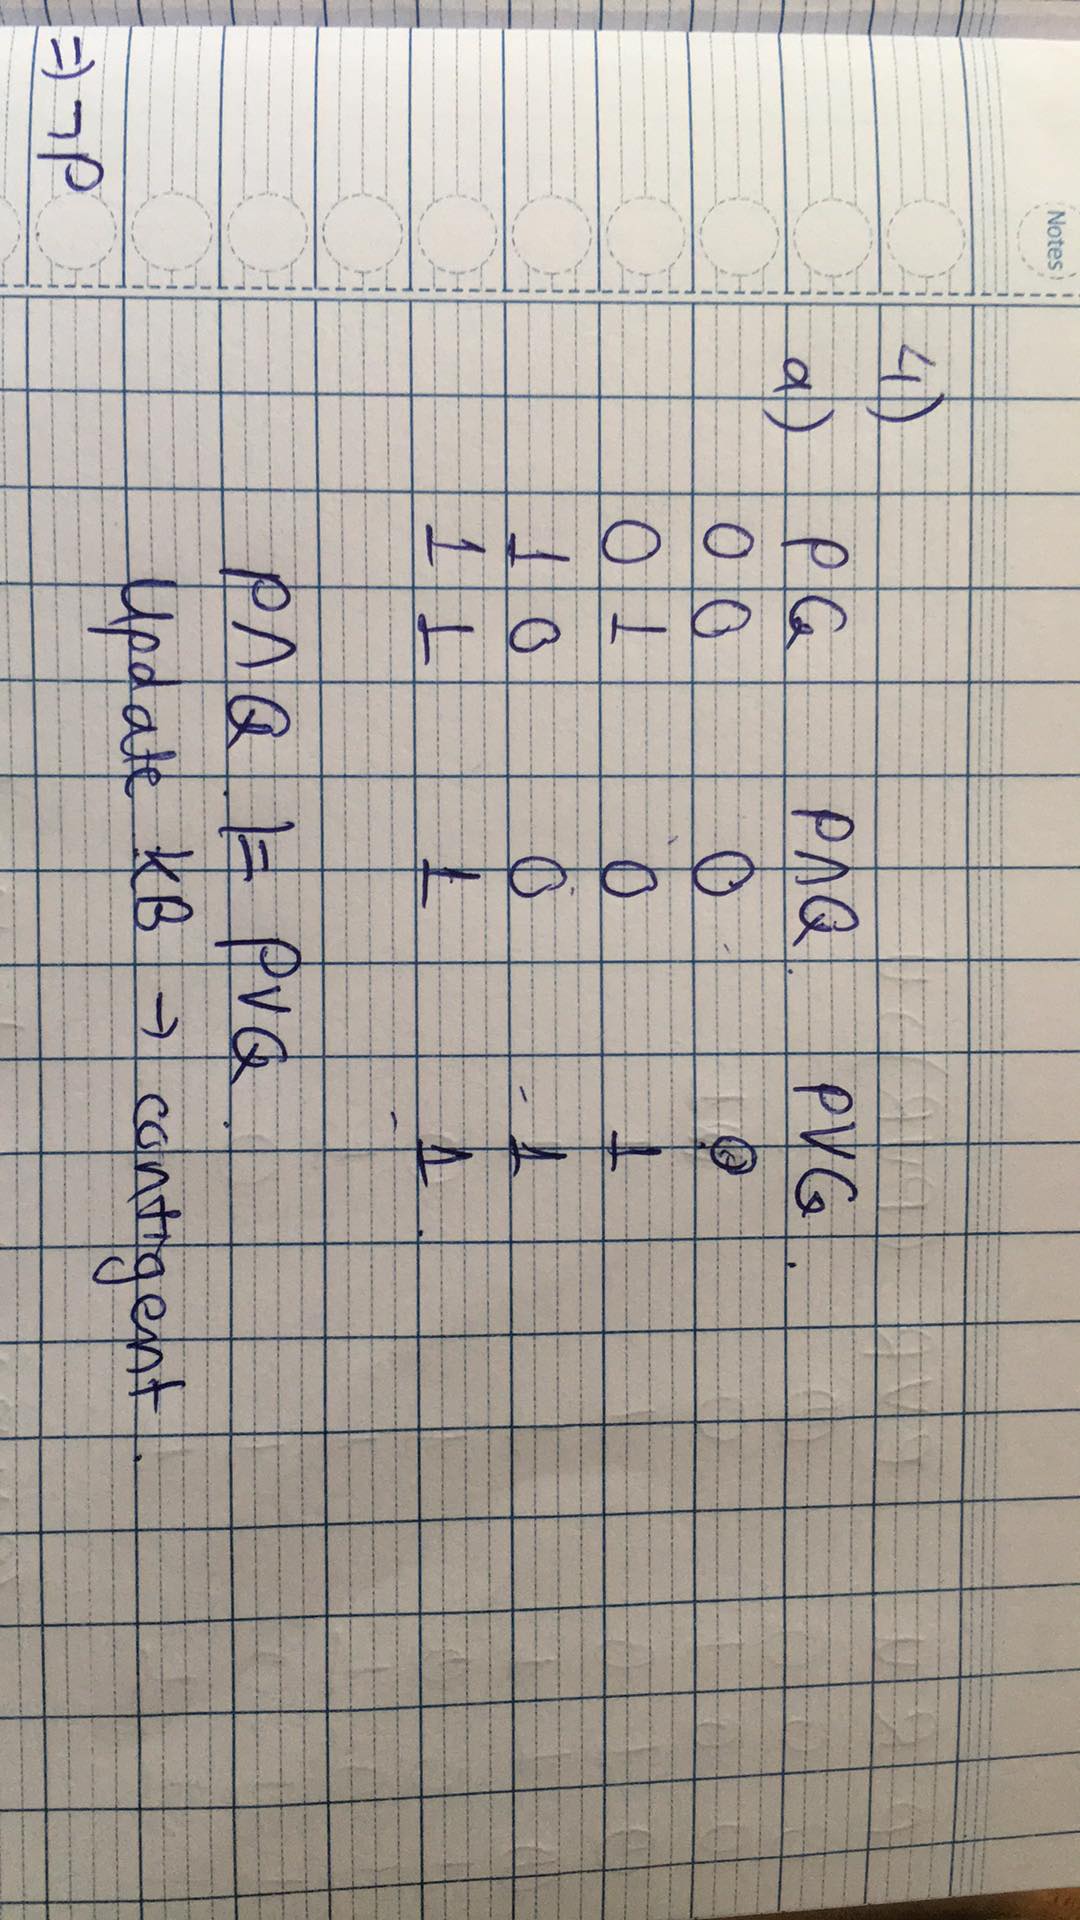 Notes
4)
a) P Q P∧Q P∨Q
0 0 0 0
0 1 0 1
1 0 0 1
1 1 1 1
P∧Q ⊨ P∨Q
Update KB → contigent.
⇒ ¬P